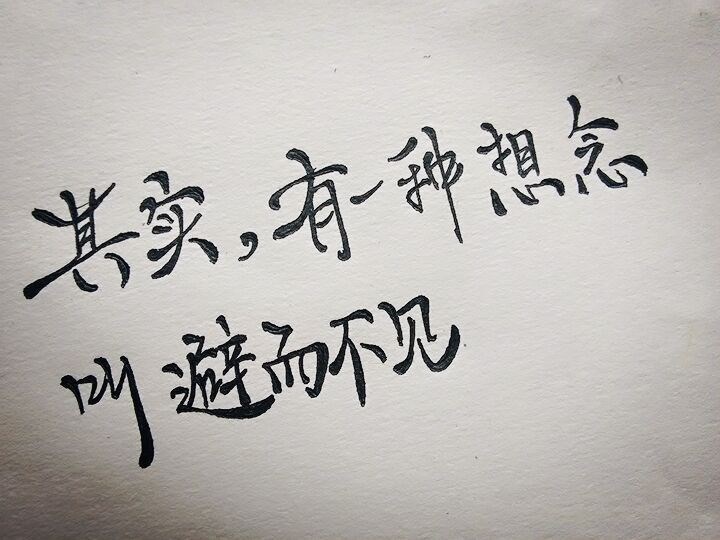 其实,有一种想念
叫避而不见